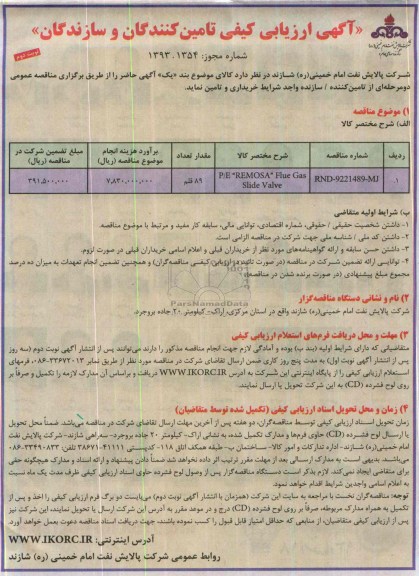 «آگهی ارزیابی کیفی تامین‌کنندگان و سازندگان»
شماره مجوز: ۱۳۹۳.۱۳۵۴
نوبت دوم
شرکت پالایش نفت امام خمینی(ره) شازند در نظر دارد کالای موضوع بند «یک» آگهی حاضر را از طریق برگزاری مناقصه عمومی
دومرحله‌ای از تامین‌کننده / سازنده واجد شرایط خریداری و تامین نماید.
۱) موضوع مناقصه
الف) شرح مختصر کالا
ردیف | شماره مناقصه | شرح مختصر کالا | مقدار تعداد | برآورد هزینه انجام موضوع مناقصه (ریال) | مبلغ تضمین شرکت در مناقصه (ریال)
۱. | RND-9221489-MJ | P/E "REMOSA" Flue Gas Slide Valve | ۸۹ قلم | ۷,۸۳۰,۰۰۰,۰۰۰ | ۳۹۱,۵۰۰,۰۰۰
ب) شرایط اولیه متقاضی
۱- داشتن شخصیت حقیقی / حقوقی، شماره اقتصادی، توانایی مالی، سابقه کار مفید و مرتبط با موضوع مناقصه.
۲- داشتن کد ملی / شناسه ملی جهت شرکت در مناقصه الزامی است.
۳- داشتن حسن سابقه و ارائه گواهینامه‌های مورد نظر از خریداران قبلی و اعلام اسامی خریداران قبلی در صورت لزوم.
۴- توانایی ارائه تضمین شرکت در مناقصه (در صورت تائید در ارزیابی کیفی مناقصه‌گران) و همچنین تضمین انجام تعهدات به میزان ده درصد
مجموع مبلغ پیشنهادی (در صورت برنده شدن در مناقصه)
ParsNamadData
۲) نام و نشانی دستگاه مناقصه‌گزار
شرکت پالایش نفت امام خمینی(ره) شازند واقع در استان مرکزی، اراک- کیلومتر ۲۰ جاده بروجرد.
۳) مهلت و محل دریافت فرم‌های استعلام ارزیابی کیفی
متقاضیانی که دارای شرایط اولیه (بند ب) بوده و آمادگی لازم جهت انجام مناقصه مذکور را دارند می‌توانند پس از انتشار آگهی نوبت دوم (سه روز
پس از انتشار آگهی نوبت اول) به مدت پنج روز کاری ضمن ارسال تقاضای شرکت در مناقصه مورد نظر از طریق نمابر ۳۳۶۷۲۰۱۳-۰۸۶، فرمهای
استعلام ارزیابی کیفی را از پایگاه اینترنتی این شرکت به آدرس WWW.IKORC.IR دریافت و براساس آن مدارک لازمه را تکمیل و صرفاً بر
روی لوح فشرده (CD) به این شرکت تحویل یا ارسال نمایند.
۴) زمان و محل تحویل اسناد ارزیابی کیفی (تکمیل شده توسط متقاضیان)
زمان تحویل اسناد ارزیابی کیفی توسط مناقصه‌گران، دو هفته پس از آخرین مهلت ارسال تقاضای شرکت در مناقصه می‌باشد. ضمناً محل تحویل
یا ارسال لوح فشرده (CD) حاوی فرم‌ها و مدارک تکمیل شده، به نشانی اراک- کیلومتر ۲۰ جاده بروجرد- سه‌راهی شازند- شرکت پالایش نفت
امام خمینی(ره) شازند- اداره تدارکات و امور کالا- ساختمان
می‌باشد. بدیهی است به مدارک ارسالی بعد از مهلت مقرر ترتیب اثر داده نخواهد شد
برای متقاضی ایجاد نمی‌کند. لازم بذکر است دستگاه مناقصه‌گزار پس از وصول لوح فشرده حاوی اسناد ارزیابی کیفی ظرف مدت یک ماه نسبت
به اعلام اسامی واجدین شرایط اقدام خواهد نمود.
توجه: مناقصه‌گران نخست با مراجعه به سایت این شرکت (همزمان با انتشار آگهی نوبت دوم) می‌بایست دو برگ فرم ارزیابی کیفی را اخذ و پس از
تکمیل به همراه مدارک مربوطه، صرفاً بر روی لوح فشرده (CD) درج و در موعد مقرر به آدرس این شرکت ارسال یا تحویل نمایند، این شرکت نیز
پس از ارزیابی کیفی متقاضیان، از منابعی که حداقل امتیاز قابل قبول را کسب نموده باشند، جهت دریافت اسناد مناقصه دعوت بعمل خواهد آورد.
آدرس اینترنتی: WWW.IKORC.IR
روابط عمومی شرکت پالایش نفت امام خمینی (ره) شازند